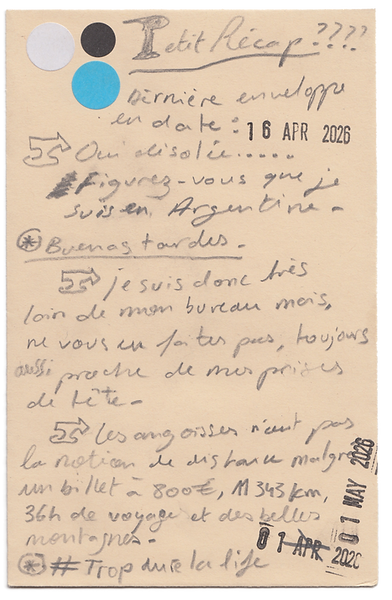 Petit Récap????
Dernière enveloppe
en date : 16 APR 2026
Oui désolée.....
Figurez-vous que je
suis en Argentine -
* Buenas tardes -
je suis donc très
loin de mon bureau mais,
ne vous en faites pas, toujours
aussi proche de mes prises
de tête -
Les angoisses n'ont pas
la notion de distance malgré
un billet à 800€, 11343km,
36h de voyage et des belles
montagnes -
01 APR 2026
01 MAY 2026
* # Trop dure la life